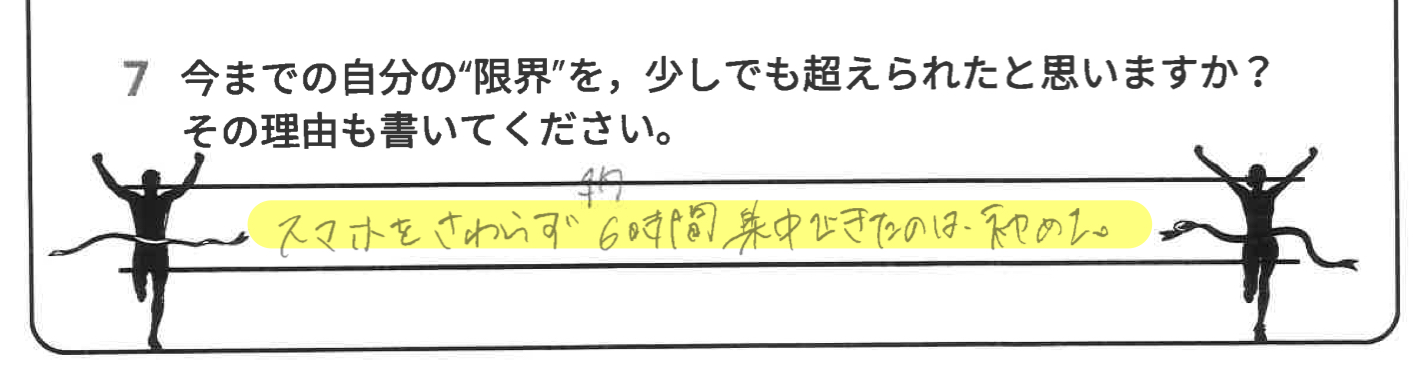 7 今までの自分の“限界”を，少しでも超えられたと思いますか？
その理由も書いてください。
約
スマホをさわらず 6時間集中できたのは、初めた。